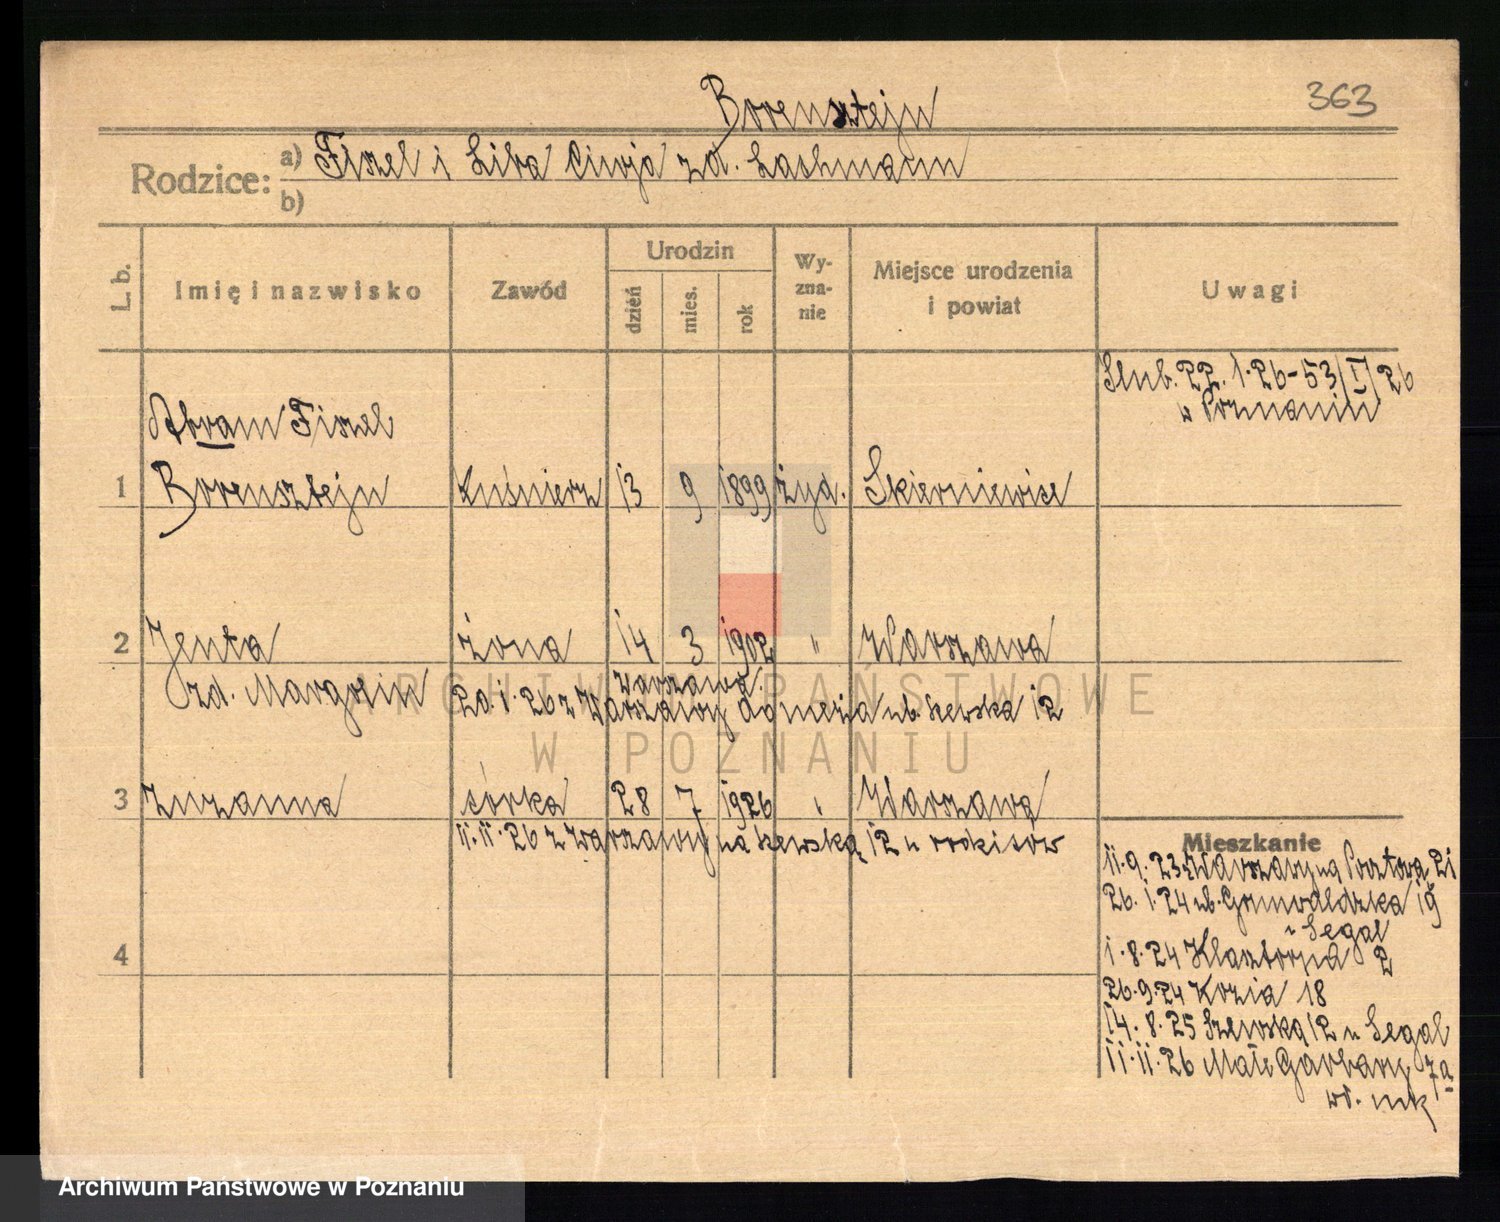 Borensztejn
363
Rodzice: a) Fiszel i Liba Ciwja zd. Lachmann
b)
L. b.
Imię i nazwisko
Zawód
Urodzin
dzień
mies.
rok
Wy-
zna-
nie
Miejsce urodzenia
i powiat
Uwagi
Ślub. 22. 1. 26 - 53/I/26
w Poznaniu
Abram Fiszel
1 Borensztejn kuśnierz 13 9 1899 żyd. Skierniewice
2 Jenta żona 14 3 1902 " Warszawa
zd. Margolin
Warszawa
20. 1. 26 z Warszawy do męża ul. Szewska 12
3 Zuzanna córka 28 7 1926 " Warszawa
11. 11. 26 z Warszawy na Szewską 12 u rodziców
4
Mieszkanie
11. 9. 23 z Warszawy na Pocztową 21
26. 1. 24 ul. Grunwaldzka 19
u Segal
1. 8. 24 Klasztorna 2
26. 9. 24 Kozia 18
14. 8. 25 Szewska 12 u Segal
11. 11. 26 Małe Garbary 7a
wł. mk
ARCHIWUM PAŃSTWOWE
W POZNANIU
Archiwum Państwowe w Poznaniu